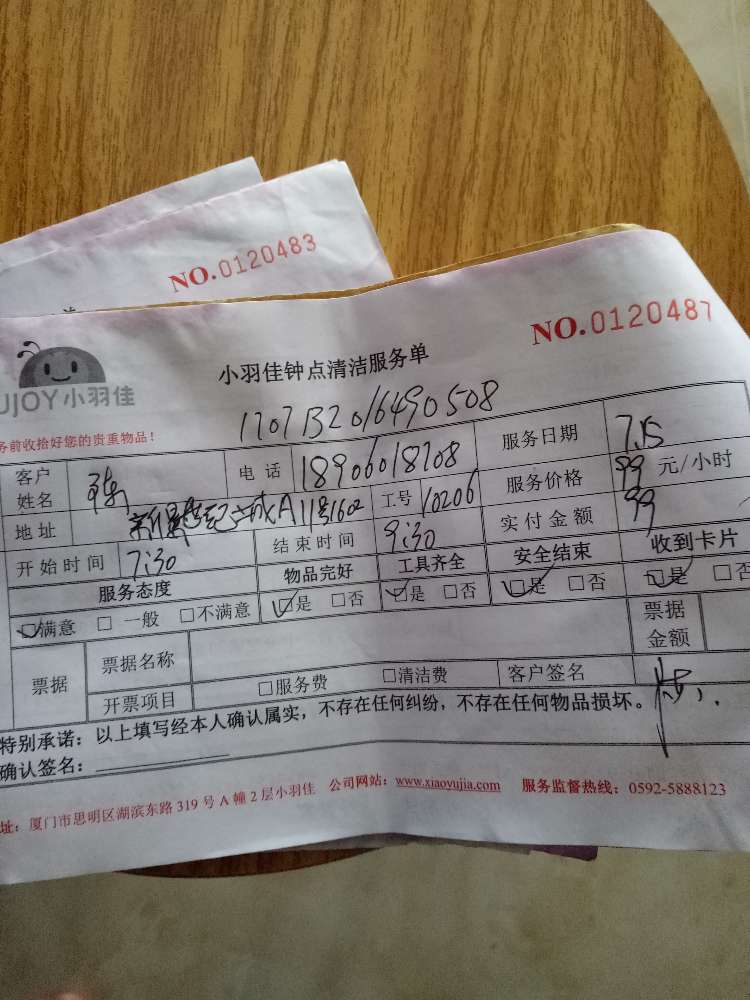 NO.0120483
NO.0120487
UJOY小羽佳
小羽佳钟点清洁服务单
务前收拾好您的贵重物品！
1707B2016490508
客户姓名 电话 18906018708 服务日期 7.15
地址 A11号1602 工号 10206 服务价格 99 元/小时
开始时间 7:30 结束时间 9:30 实付金额 99
服务态度 物品完好 工具齐全 安全结束 收到卡片
☑满意 □一般 □不满意 ☑是 □否 ☑是 □否 ☑是 □否 ☑是 □否
票据 票据名称 票据金额
开票项目 □服务费 □清洁费 客户签名
特别承诺：以上填写经本人确认属实，不存在任何纠纷，不存在任何物品损坏。
确认签名：
址：厦门市思明区湖滨东路 319 号 A 幢 2 层小羽佳 公司网站：www.xiaoyujia.com 服务监督热线：0592-5888123